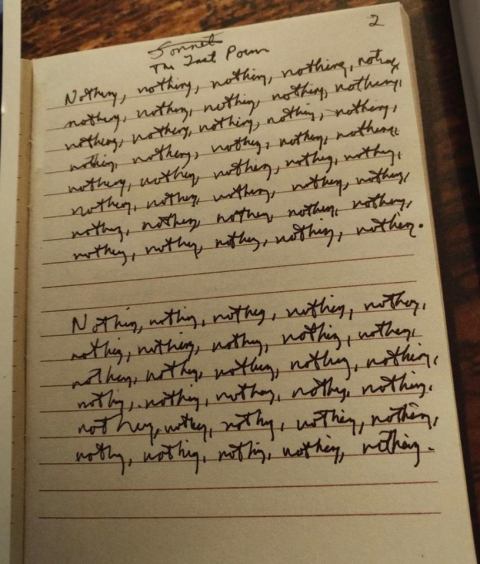 2
Sonnet
The Last Poem
Nothing, nothing, nothing, nothing, nothing,
nothing, nothing, nothing, nothing, nothing,
nothing, nothing, nothing, nothing, nothing,
nothing, nothing, nothing, nothing, nothing,
nothing, nothing, nothing, nothing, nothing,
nothing, nothing, nothing, nothing, nothing,
nothing, nothing, nothing, nothing, nothing,
nothing, nothing, nothing, nothing, nothing.
Nothing, nothing, nothing, nothing, nothing,
nothing, nothing, nothing, nothing, nothing,
nothing, nothing, nothing, nothing, nothing,
nothing, nothing, nothing, nothing, nothing.
nothing, nothing, nothing, nothing, nothing,
nothing, nothing, nothing, nothing, nothing.